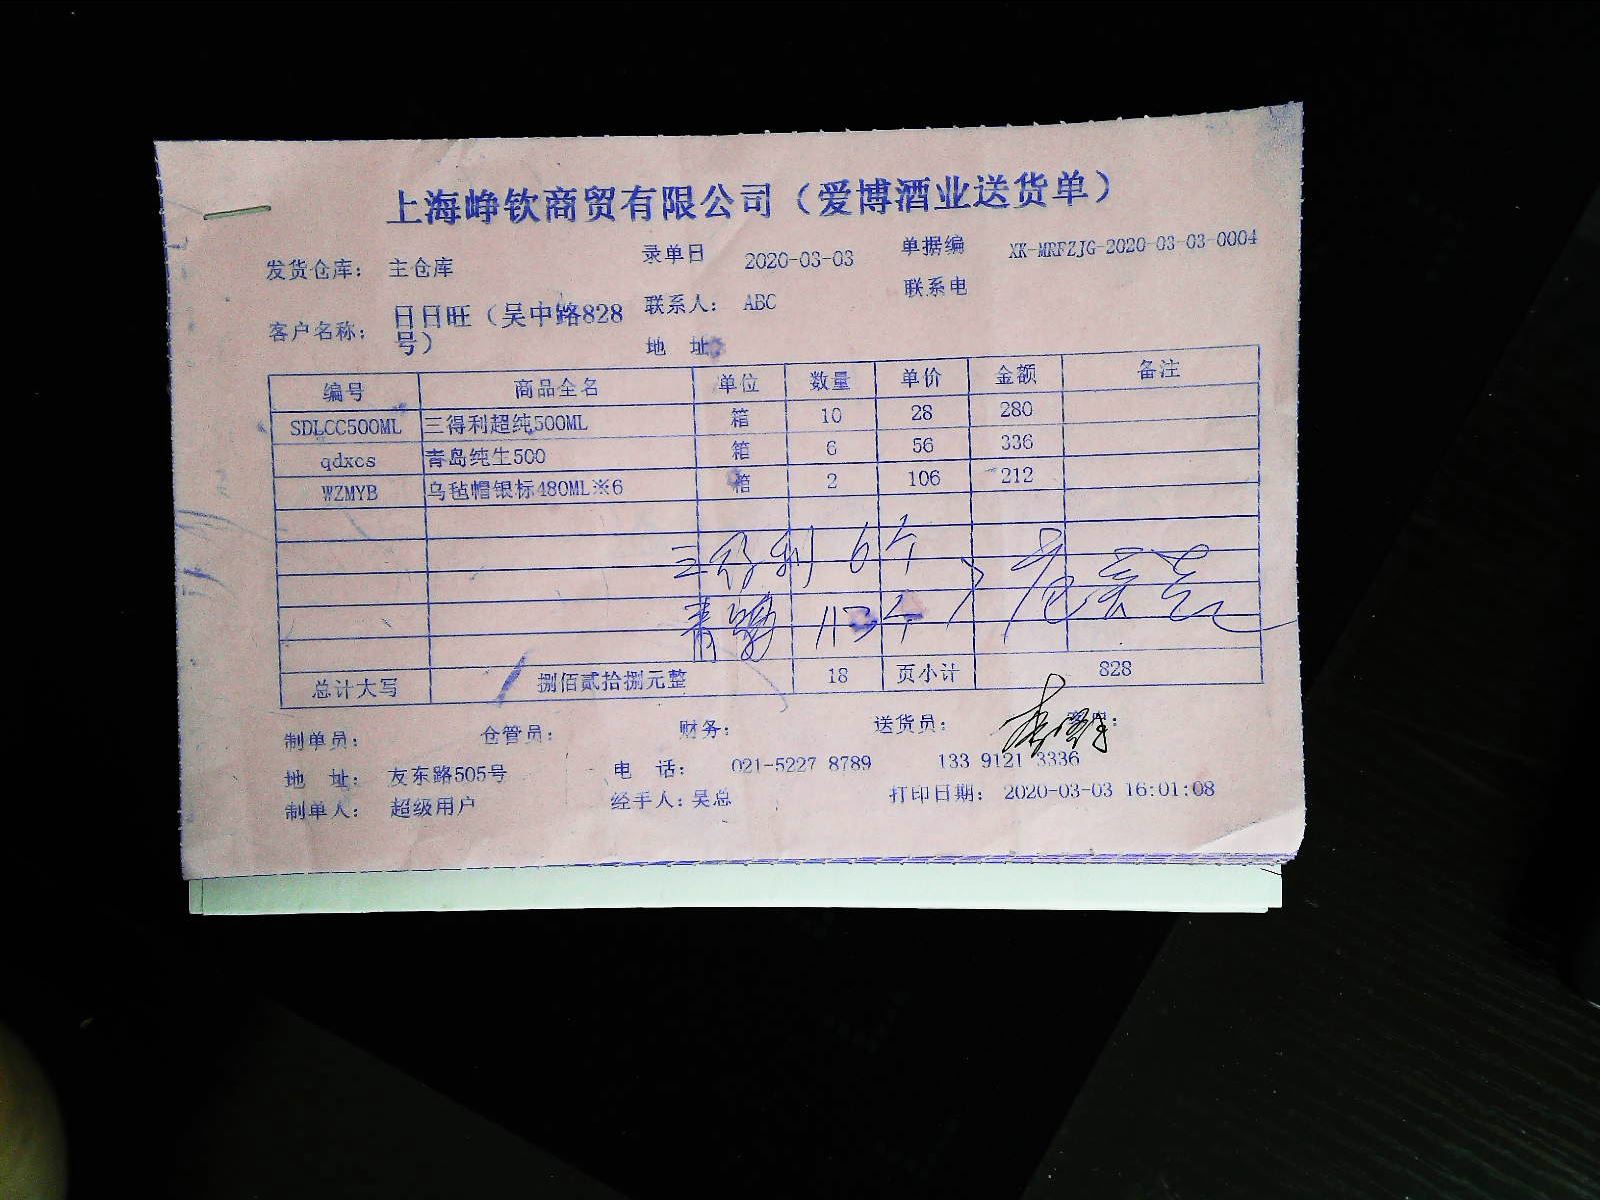 上海峥钦商贸有限公司（爱博酒业送货单）
发货仓库： 主仓库 录单日 2020-03-03 单据编 XK-MRFZJG-2020-03-03-0004
客户名称： 日日旺（吴中路828号） 联系人： ABC 联系电
地 址
编号 商品全名 单位 数量 单价 金额 备注
SDLCC500ML 三得利超纯500ML 箱 10 28 280
qdxcs 青岛纯生500 箱 6 56 336
WZMYB 乌毡帽银标480ML※6 箱 2 106 212
三得利 6个
青岛
总计大写 捌佰贰拾捌元整 18 页小计 828
制单员： 仓管员： 财务： 送货员：
地 址： 友东路505号 电 话： 021-5227 8789 133 9121 3336
制单人： 超级用户 经手人：吴总 打印日期： 2020-03-03 16:01:08